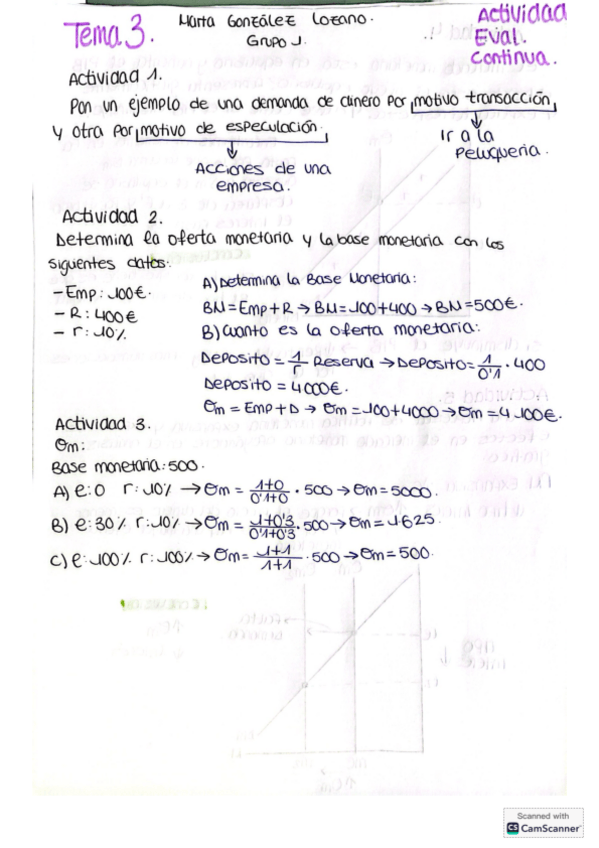 Tema 3.
Marta González Lozano.
Grupo J.
Actividad
Eval.
Continua.
Actividad 1.
Pon un ejemplo de una demanda de dinero por motivo transacción,
y otra por motivo de especulación.
Ir a la
Peluqueria.
Acciones de una
empresa.
Actividad 2.
Determina la oferta monetaria y la base monetaria con los
siguientes datos:
- Emp: 100€.
- R: 400€
- r: 10%
A) Determina la Base Monetaria:
BM = Emp + R → BM = 100 + 400 → BM = 500€.
B) Cuanto es la oferta monetaria:
Deposito = 1/r Reserva → Deposito = 1/0'1 · 400
Deposito = 4000€.
Om = Emp + D → Om = 100 + 4000 → Om = 4100€.
Actividad 3.
Om:
Base monetaria: 500.
A) e: 0 r: 10% → Om = 1+0/0'1+0 · 500 → Om = 5000.
B) e: 30% r: 10% → Om = 1+0'3/0'1+0'3 · 500 → Om = 1625.
C) e: 100% r: 100% → Om = 1+1/1+1 · 500 → Om = 500.
Scanned with
CS CamScanner